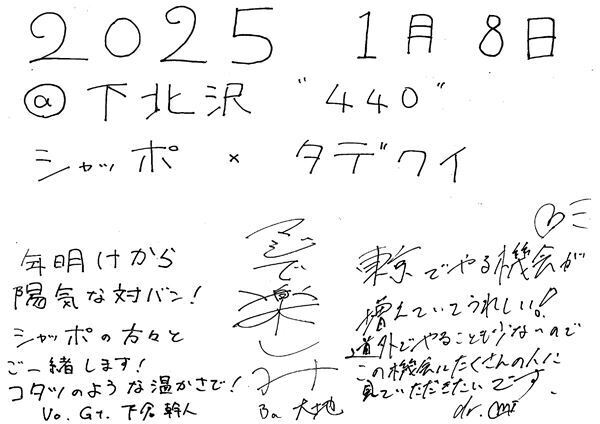 2025 1月8日
@下北沢 "440"
シャッポ × タデクイ
年明けから
陽気な対バン!
シャッポの方々と
ご一緒します!
コタツのような温かさで!
Vo. Gt. 下倉幹人
マジ
で
楽
し
み
Ba 大地
東京でやる機会が
増えていてうれしい!
道外でやることも少ないので
この機会にたくさんの人に
見ていただきたいです。
dr.